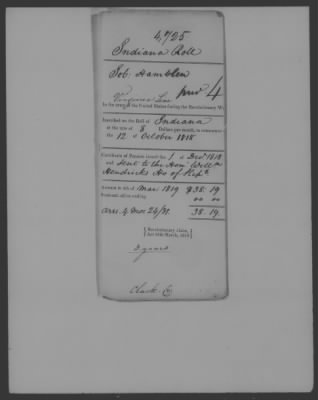 4,725
Indiana Roll
Job Hamblen
Virginia Line priv 4
in the army of the United States during the Revolutionary W
Inscribed on the Roll of Indiana
at the rate of 8 Dollars per month, to commence
the 12 of October 1818
Certificate of Pension issued the 1 of Decr 1818
and sent to the Hon Willm
Hendricks Ho of Repr
Arrears to 4th of Mar 1819 $38.19
Semi-anl. all'ce ending 00 00
Arrs 4 Mos 24/31 38.19
[Revolutionary claim,]
[Act 18th March, 1818.]
3 years
Clark Co